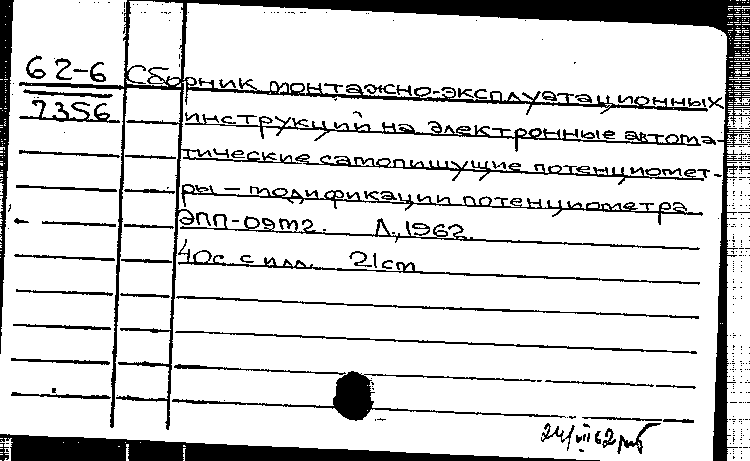 62-6 Сборник монтажно-эксплуатационных
7356 инструкций на электронные автома-
тические самопишущие потенциомет-
ры – модификации потенциометра
ЭПП-09м2. Л., 1962.
40с с илл. 21cm
24/VII 62